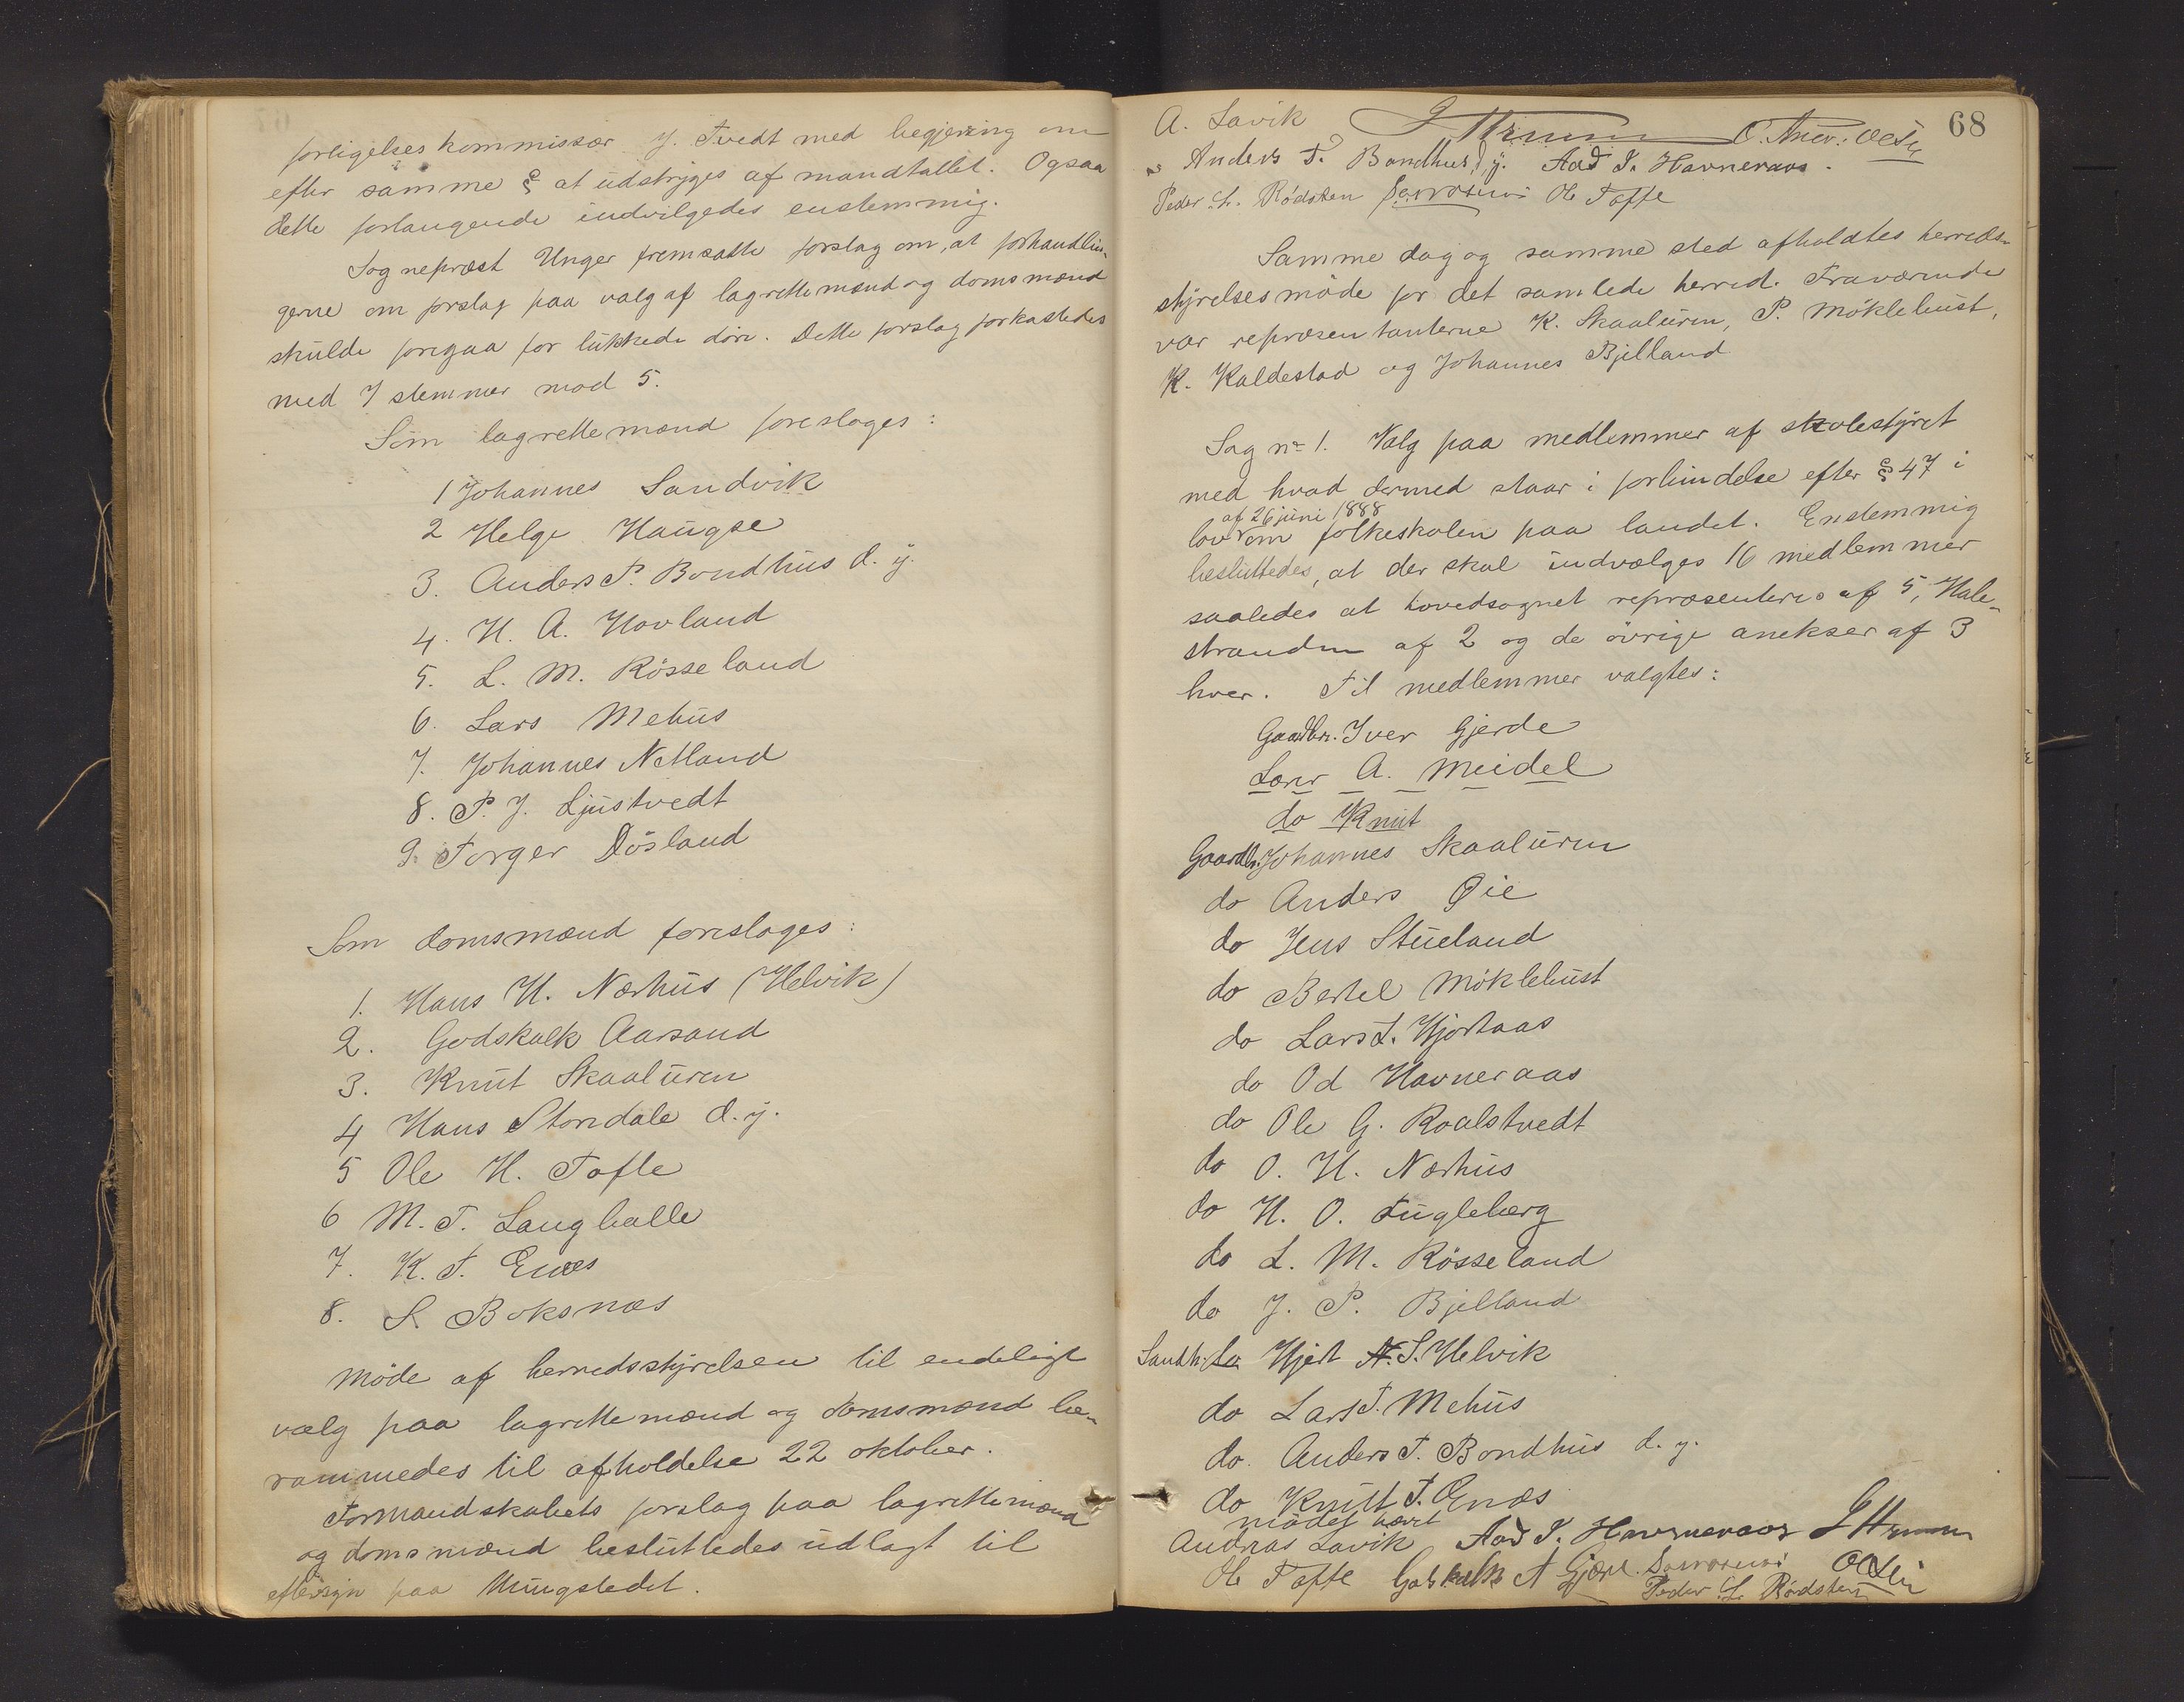 forligelseskommissær J. Tvedt med begjæring om
efter samme § at udstryges af mandtallet. Ogsaa
dette forlangende indvilgedes enstemmig.
Sognepræst Unger fremsatte forslag om, at forhandlin-
gerne om forslag paa valg af lagrettemænd og domsmænd
skulde foregaa for lukkede døre. Dette forslag forkastedes
med 7 stemmer mod 5.
Som lagrettemænd foresloges:
1 Johannes Sandvik
2 Helge Haugse
3. Anders P. Bondhus d. y.
4. H. A. Hovland
5. L. M. Rösseland
6. Lars Mehus
7. Johannes Netland
8. P. J. Ljustvedt
9. Torger Dösland
Som domsmænd foresloges:
1. Hans H. Nærhus (Helvik)
2. Godskalk Aarsand
3. Knut Skaaluren
4 Hans Stondale d. y.
5 Ole H. Tofte
6 M. T. Langballe
7. K. T. Enæs
8. S. Boksnæs
Möde af herredsstyrelsen til endeligt
valg paa lagrettemænd og domsmænd be-
rammedes til afholdelse 22 oktober.
Formandskabets forslag paa lagrettemænd
og domsmænd besluttedes udlagt til
eftersyn paa thingstedet.
68
A. Lavik
Anders T. Bondhus d. y. Aad J. Havneraas.
Peder L. Rødsten Ole Tofte
Samme dag og samme sted afholdtes herreds-
styrelsesmöde for det samlede herred. Fraværende
var repræsentanterne K. Skaaluren, P. Möklebust,
K. Kaldestad og Johannes Bjelland
Sag no 1. Valg paa medlemmer af skolestyret
med hvad dermed staar i forbindelse efter § 47 i
af 26 juni 1888
lov om folkeskolen paa landet. Enstemmig
besluttedes, at der skal indvælges 16 medlemmer
saaledes at hovedsognet repræsenteres af 5, Hale-
stranden af 2 og de övrige anekser af 3
hver. Til medlemmer valgtes:
Gaardbr. Iver Gjerde
Lærer A. Meidel
do Knut
Gaardbr. Johannes Skaaluren
do Anders Øie
do Jens Stueland
do Bertel Möklebust
do Lars L. Hjortaas
do Od Havneraas
do Ole G. Roalstvedt
do O. H. Nærhus
do H. O. Fugleberg
do L. M. Rösseland
do J. P. Bjelland
Landh. do Hjert N. S. Helvik
do Lars T. Mehus
do. Anders T. Bondhus d. y.
do Knut T. Enæs
mödet hævet
Andreas Lavik Aad J. Havneraas
Ole Tofte
Peder L. Rødsten